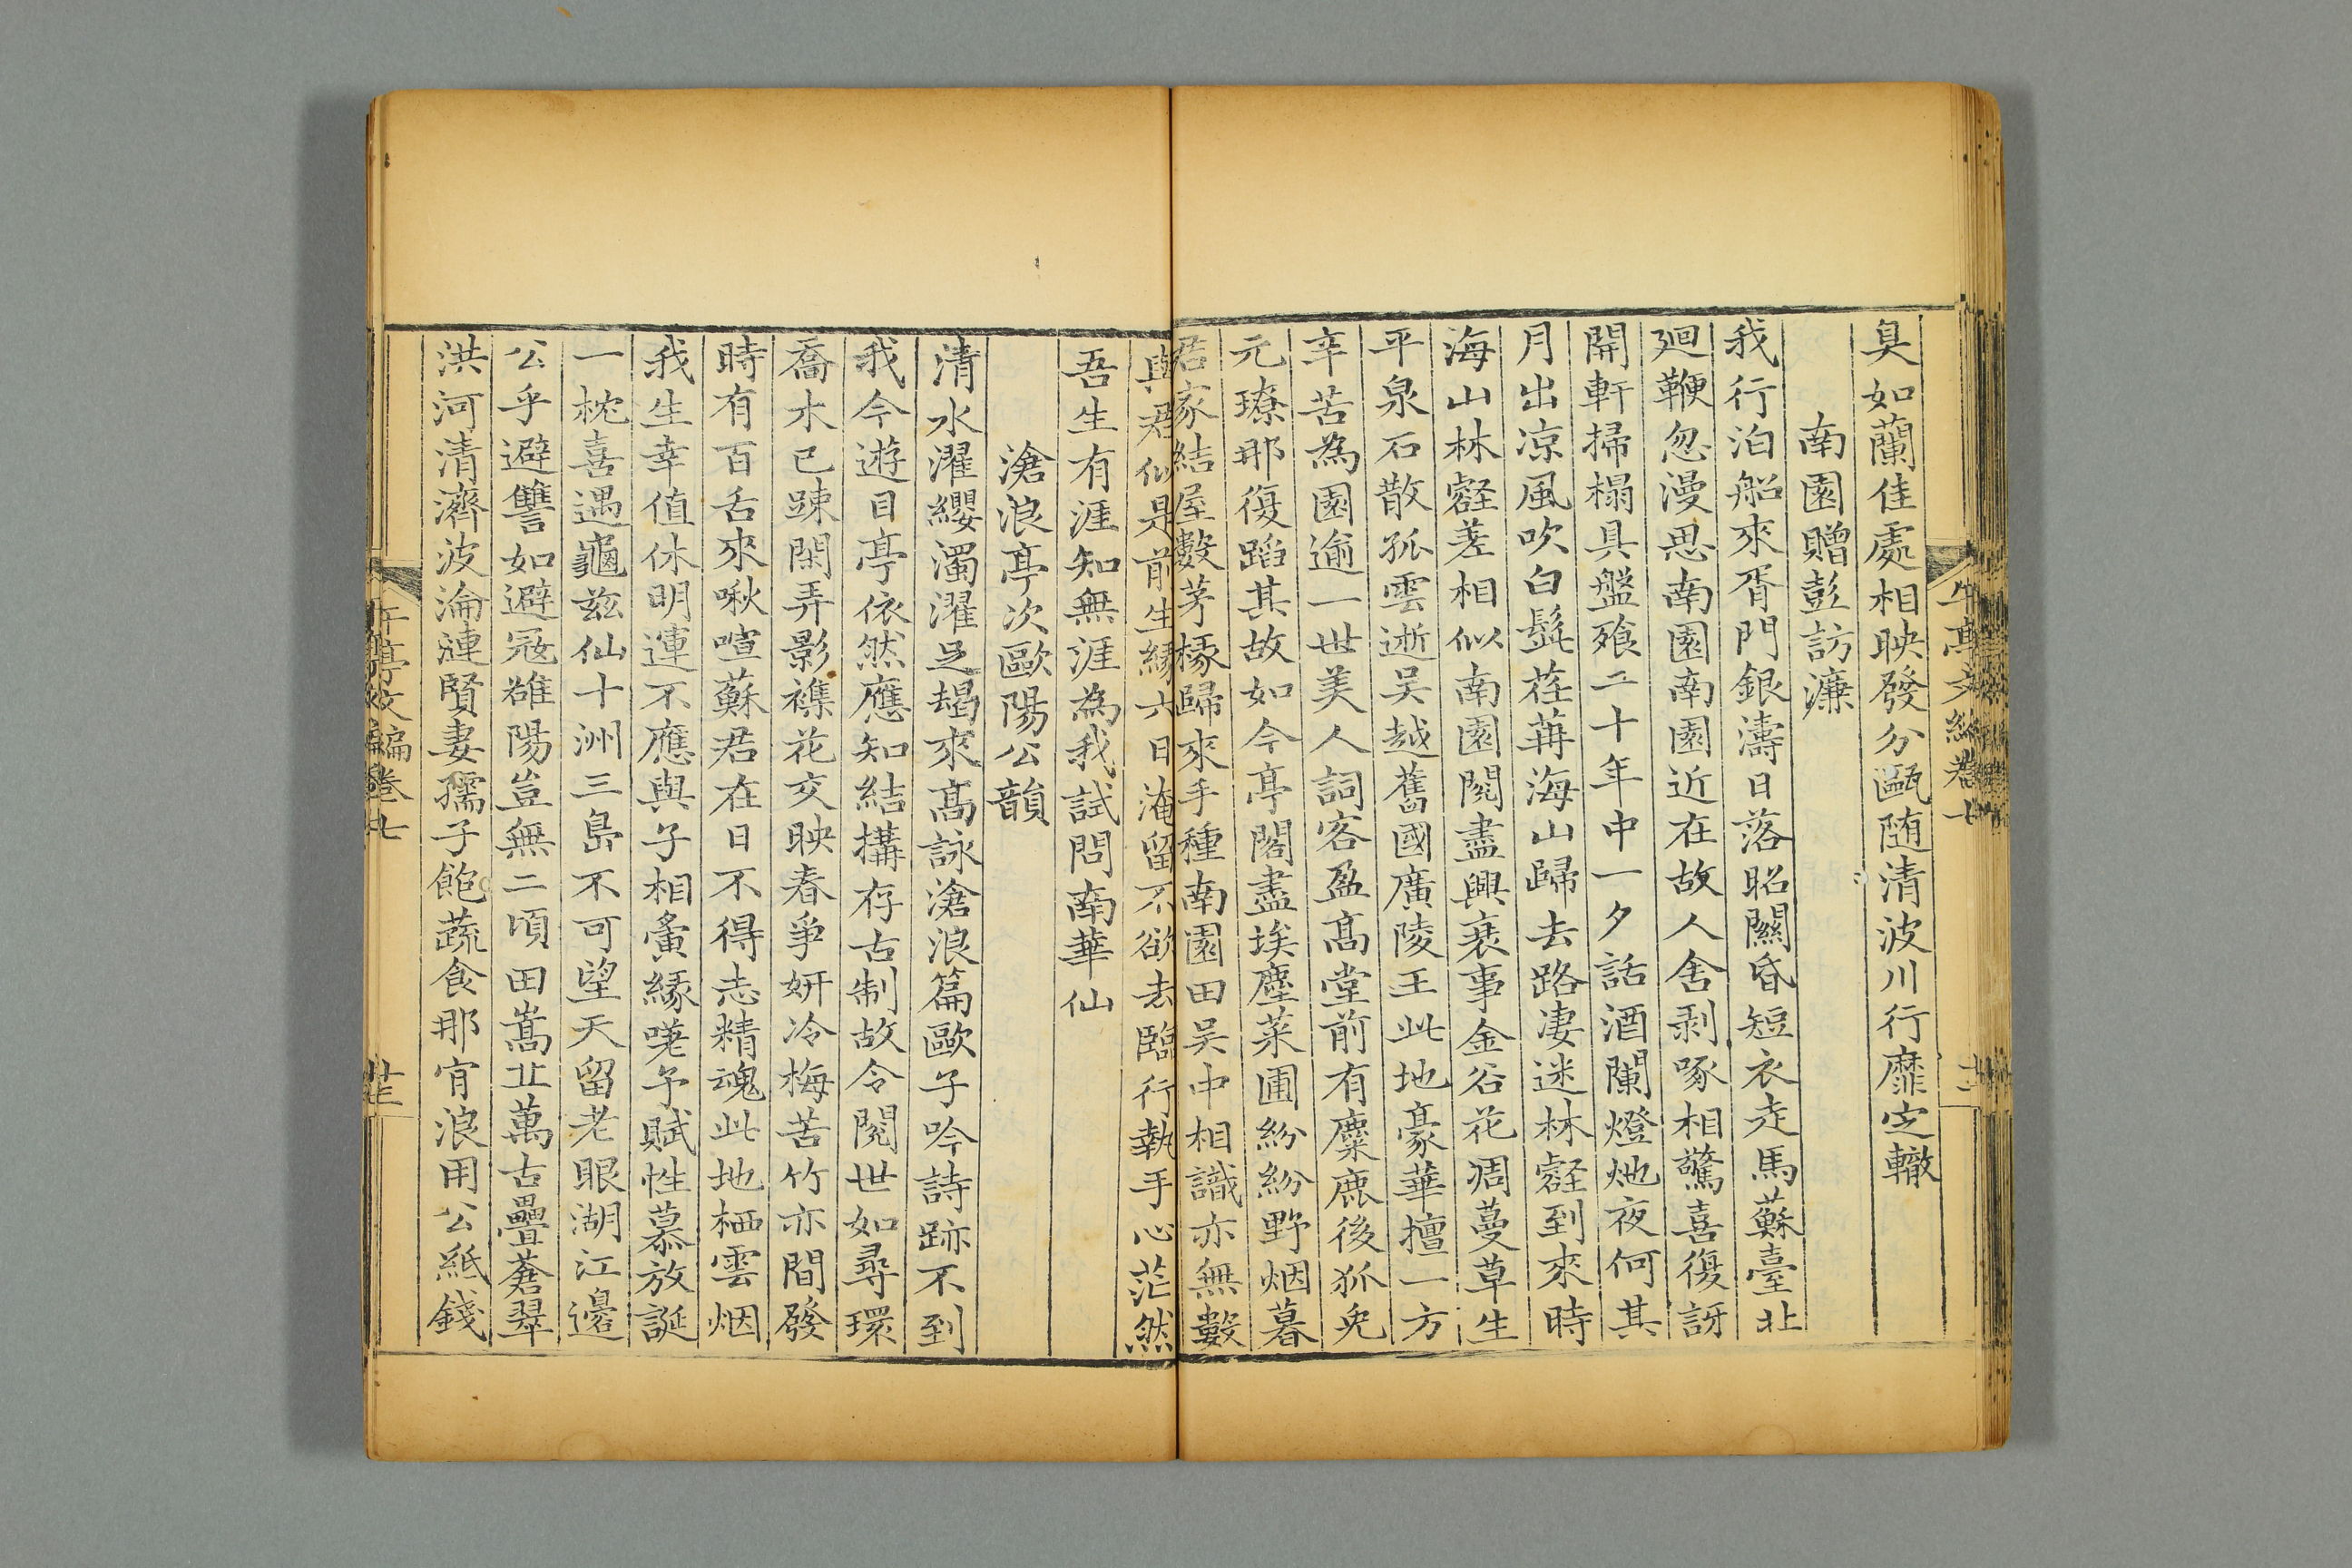 臭如蘭佳處相映發分甌随清波川行靡定轍
南園贈彭訪濂
我行泊船來胥門銀濤日落昭關昏短衣走馬蘇臺北
廻鞭忽漫思南園南園近在故人舍剥啄相驚喜復訝
開軒掃榻具盤飱二十年中一夕話酒闌燈灺夜何其
月出凉風吹白髭荏苒海山歸去路淒迷林壑到來時
海山林壑差相似南園閱盡興衰事金谷花凋蔓草生
平泉石散孤雲逝吴越舊國廣陵王此地豪華擅一方
辛苦為園逾一世美人詞客盈高堂前有麋鹿後狐兔
元璙那復蹈其故如今亭閣盡埃塵菜圃紛紛野烟暮
君家結屋數茅椽歸來手種南園田吴中相識亦無數
與君似是前生緣六日淹留不欲去臨行執手心茫然
吾生有涯知無涯為我試問南華仙
滄浪亭次歐陽公韻
清水濯纓濁濯足朅來高詠滄浪篇歐子吟詩跡不到
我今遊目亭依然應知結搆存古制故令閱世如尋環
喬木已踈閑弄影襍花交映春爭妍冷梅苦竹亦間發
時有百舌來啾喧蘇君在日不得志精魂此地栖雲烟
我生幸值休明運不應與子相夤緣嗟予賦性慕放誕
一枕喜遇龜茲仙十洲三島不可望天留老眼湖江邊
公乎避讐如避寇雒陽豈無二頃田嵩丠萬古疊蒼翠
洪河清濟波淪漣賢妻孺子飽蔬食那肯浪用公紙錢
午亭文編卷七